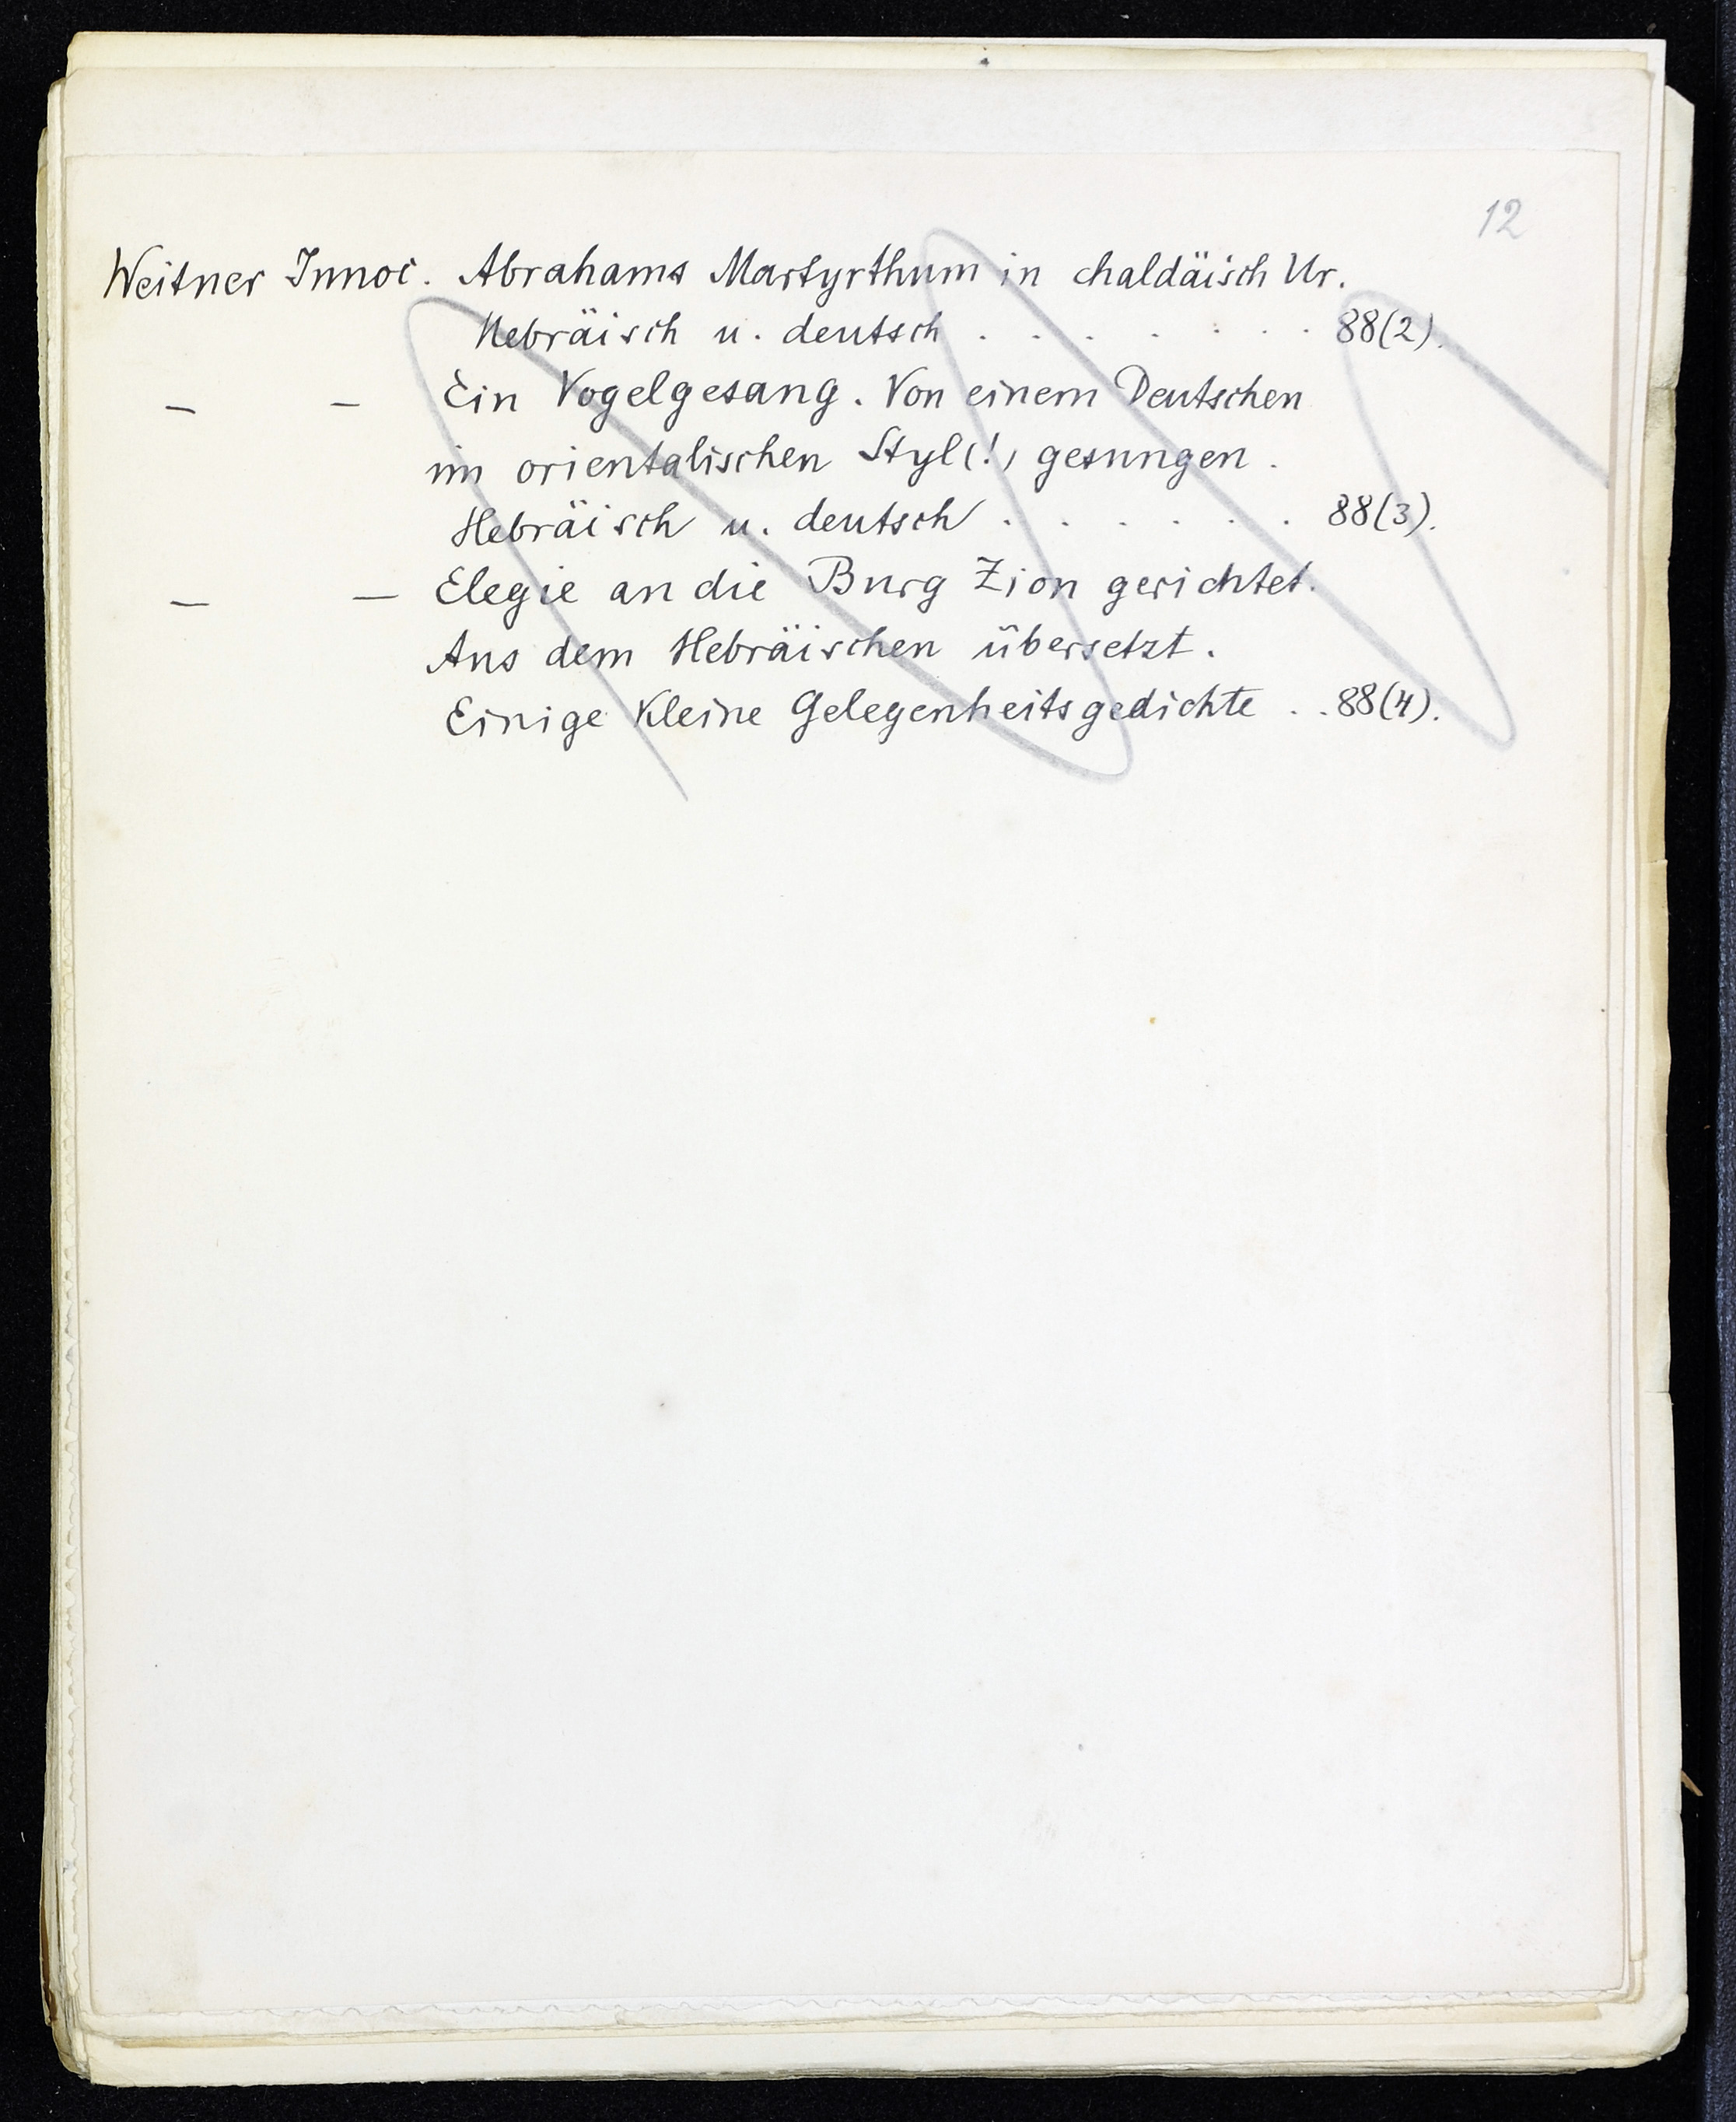 12
Weitner Innoc. Abrahams Martyrthum in chaldäisch Ur.
Hebräisch u. deutsch . . . . . . . 88(2).
— — Ein Vogelgesang. Von einem Deutschen
im orientalischen Styl(!) gesungen.
Hebräisch u. deutsch . . . . . . 88(3).
— — Elegie an die Burg Zion gerichtet.
Aus dem Hebräischen übersetzt.
Einige kleine Gelegenheitsgedichte . . 88(4).